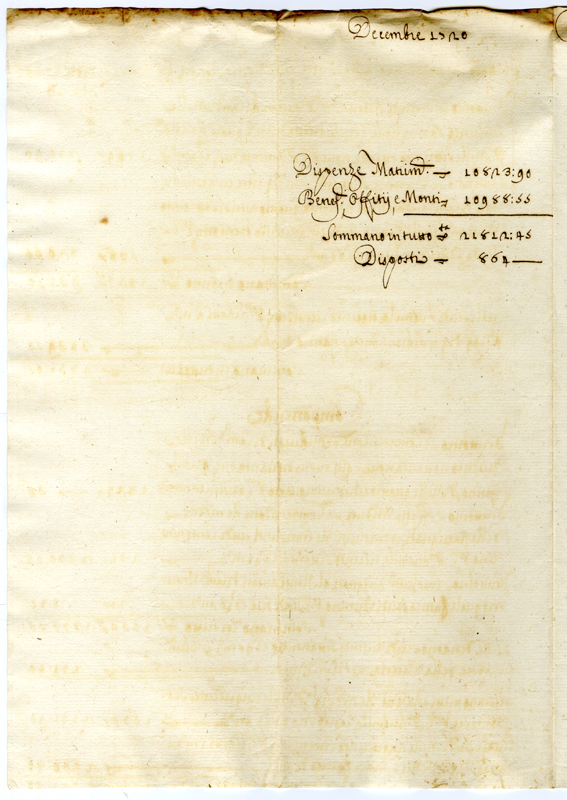 Decembre 1720
Dispenze Matrim.li — 10823:90
Benef.i Offitij e Monti — 10988:55
Sommano in tutto 21812:45
Disposti — 864 —